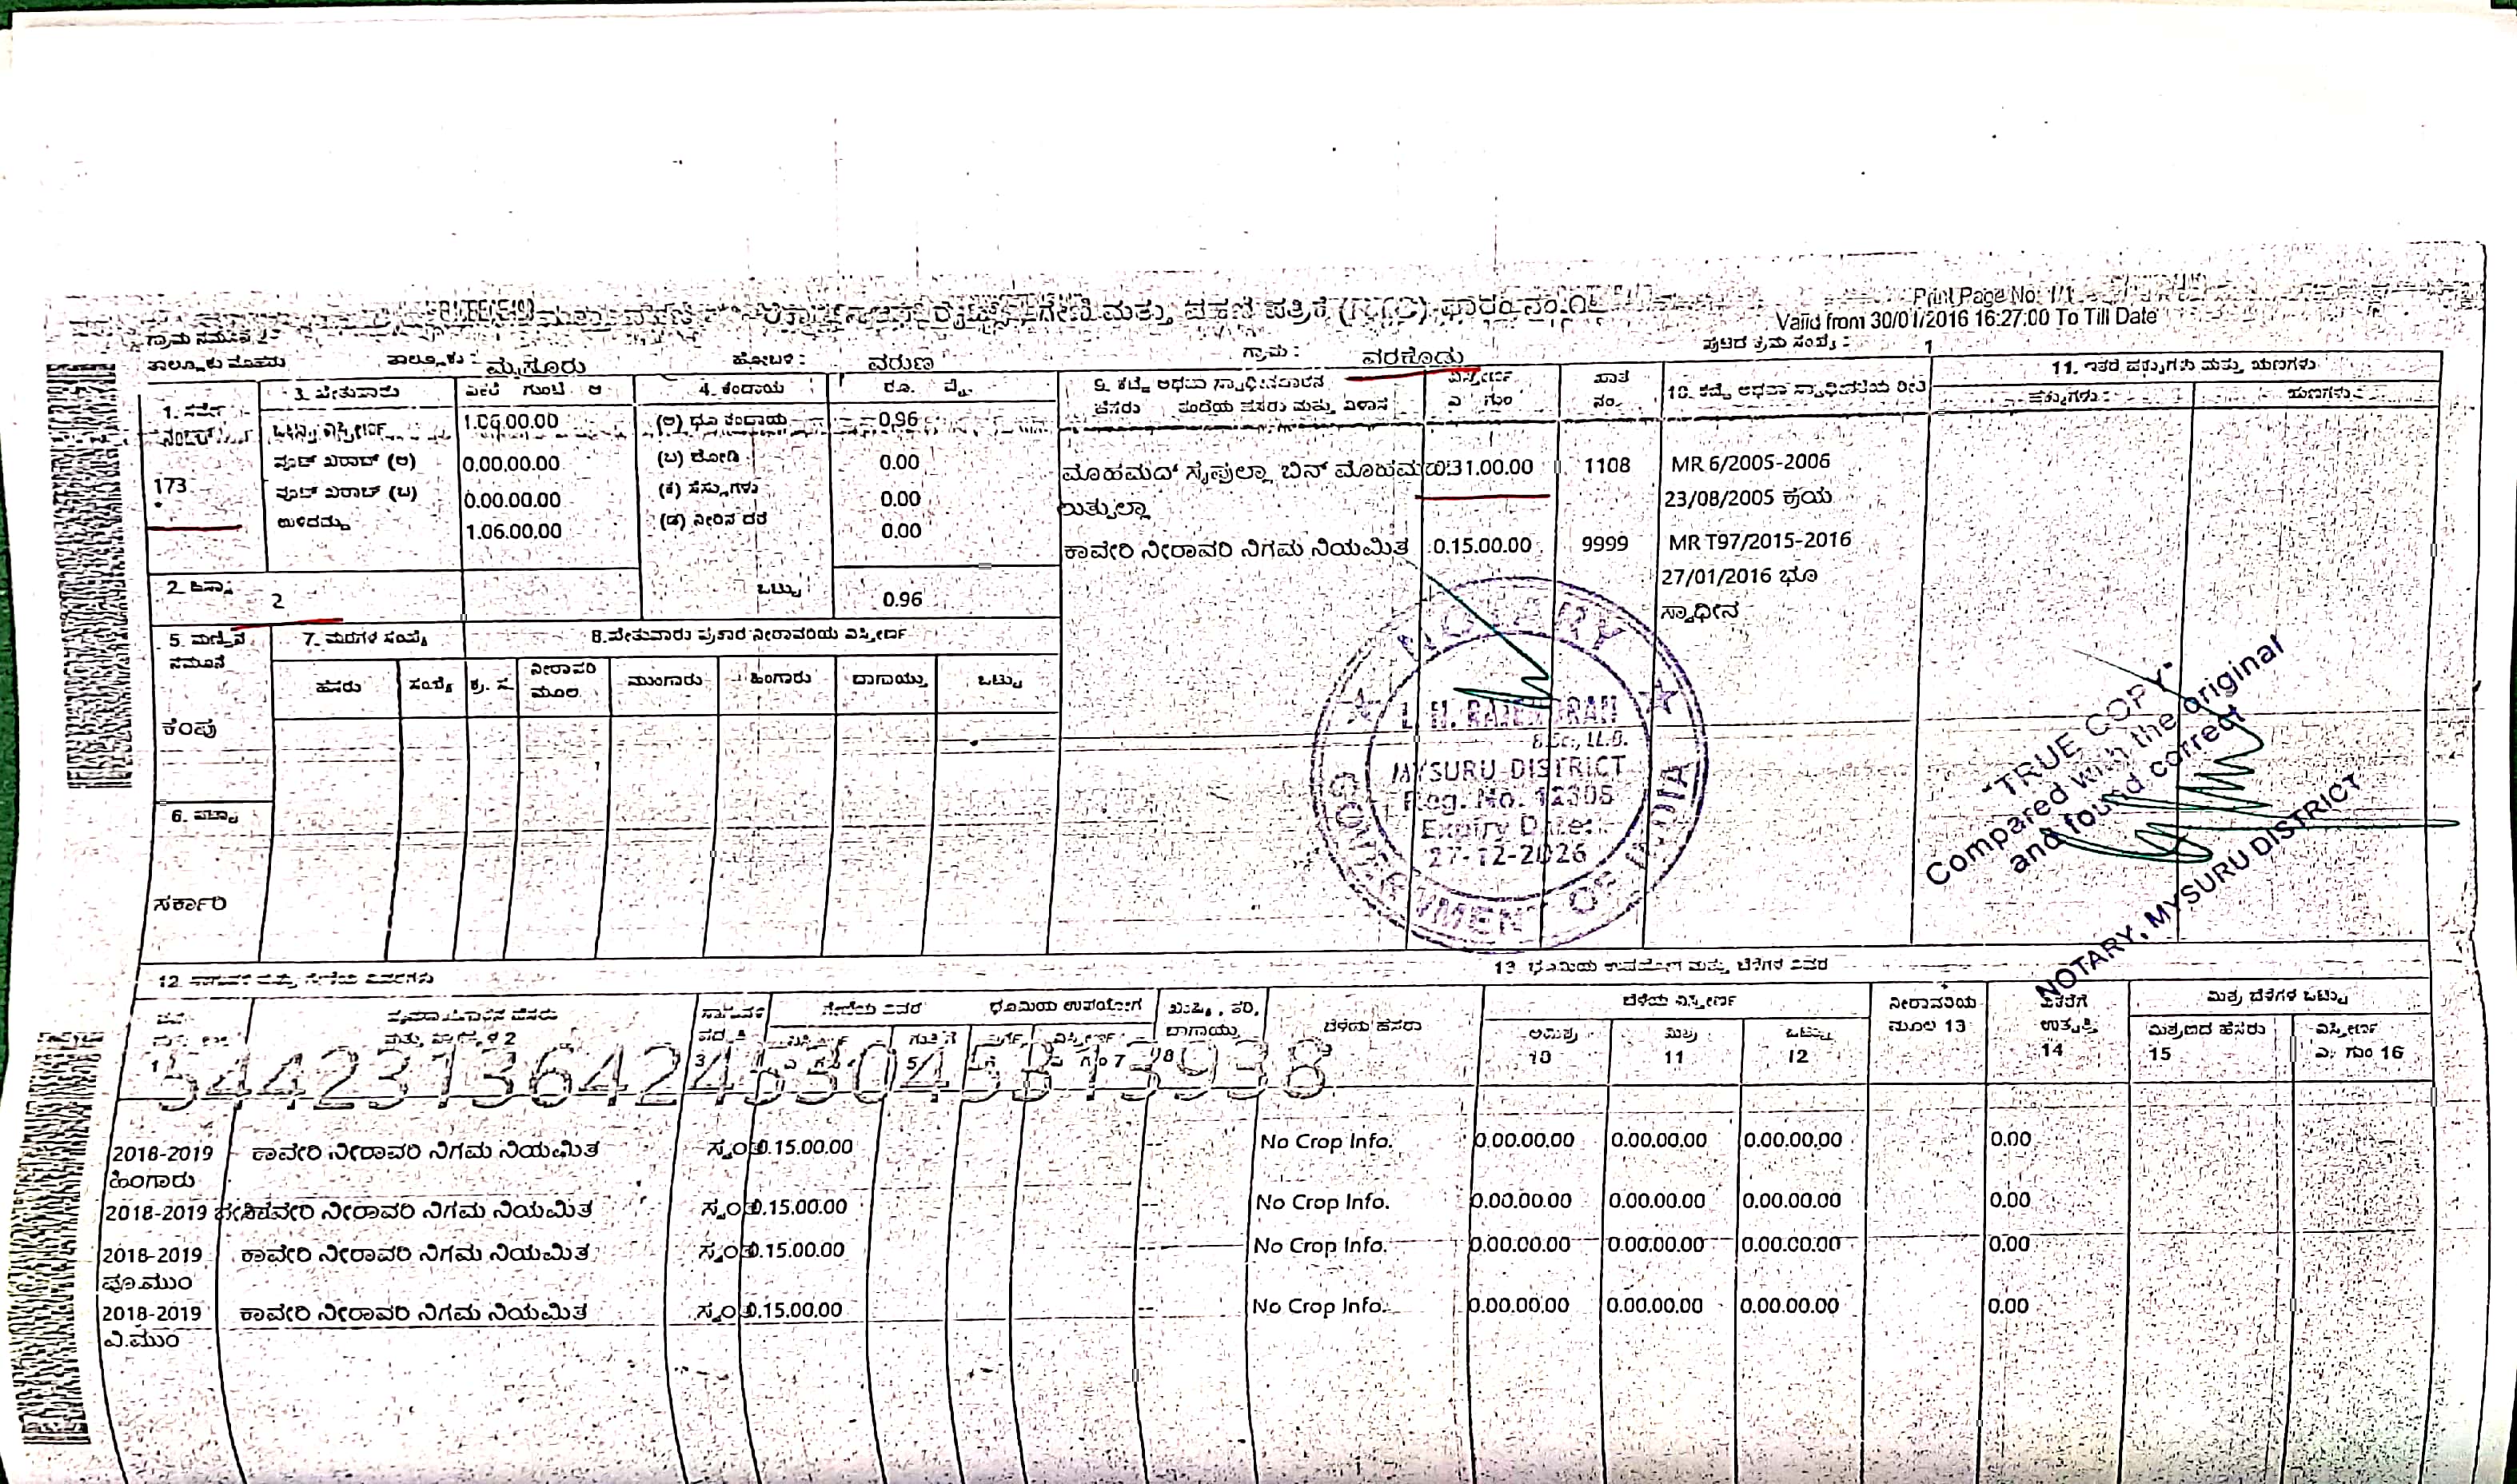 ಗೇಣಿ ಮತ್ತು ಪಹಣಿ ಪತ್ರಿಕೆ (RTC) ಫಾರಂ ನಂ.೧೬
Print Page No: 1/1
Valid from 30/01/2016 16:27:00 To Till Date
ಗ್ರಾಮ ನಮೂನೆ 2
ತಾಲ್ಲೂಕು : ಮೈಸೂರು ಹೋಬಳಿ : ವರುಣ ಗ್ರಾಮ : ವರಕೋಡು ಪುಟದ ಕ್ರಮ ಸಂಖ್ಯೆ : 1
1. ಸರ್ವೆ ನಂಬರ್
173
2. ಹಿಸ್ಸಾ
2
3. ಎಕರೆ ಗುಂಟೆ ಆ
ಒಟ್ಟು ವಿಸ್ತೀರ್ಣ 1.06.00.00
ಪೂಟ್ ಖರಾಬ್ (ಅ) 0.00.00.00
ಪೂಟ್ ಖರಾಬ್ (ಬ) 0.00.00.00
ಉಳಿದದ್ದು 1.06.00.00
4. ಕಂದಾಯ ರೂ. ಪೈ.
(ಅ) ಭೂ ಕಂದಾಯ 0.96
(ಬ) ಜೋಡಿ 0.00
(ಕ) ಸೆಸ್ಸುಗಳು 0.00
(ಡ) ನೀರಿನ ದರ 0.00
ಒಟ್ಟು 0.96
5. ಮಣ್ಣಿನ ನಮೂನೆ
ಕೆಂಪು
6. ಪಟ್ಟಾ
ಸರ್ಕಾರಿ
7. ಮರಗಳ ಸಂಖ್ಯೆ
ಹೆಸರು ಸಂಖ್ಯೆ
8. ನೀರಾವರಿಯ ವಿಸ್ತೀರ್ಣ
ಕ್ರ. ಸ ನೀರಾವರಿ ಮೂಲ ಮುಂಗಾರು ಹಿಂಗಾರು ಬಾಗಾಯ್ತು ಒಟ್ಟು
9. ಕಬ್ಜೆ ಅಥವಾ ಸ್ವಾಧೀನದಾರನ ಹೆಸರು ತಂದೆಯ ಹೆಸರು ಮತ್ತು ವಿಳಾಸ ವಿಸ್ತೀರ್ಣ ಎ ಗುಂ ಖಾತ ನಂ. 10. ಕಬ್ಜೆ ಅಥವಾ ಸ್ವಾಧೀನತೆಯ ರೀತಿ
11. ಇತರೆ ಹಕ್ಕುಗಳು ಮತ್ತು ಋಣಗಳು
ಹಕ್ಕುಗಳು ಋಣಗಳು
ಮೊಹಮದ್ ಸೈಫುಲ್ಲಾ ಬಿನ್ 0.31.00.00 1108 MR 6/2005-2006
23/08/2005 ಕ್ರಯ
ಕಾವೇರಿ ನೀರಾವರಿ ನಿಗಮ ನಿಯಮಿತ 0.15.00.00 9999 MR T97/2015-2016
27/01/2016 ಭೂ
ಸ್ವಾಧೀನ
NOTARY
L. N. RAJENDRAN
B.Sc., LL.B.
MYSURU DISTRICT
Reg. No. 12306
Expiry Date:
27-12-2026
GOVERNMENT OF INDIA
"TRUE COPY"
Compared with the original
and found correct
NOTARY, MYSURU DISTRICT
12.
13. ಭೂಮಿಯ ಉಪಯೋಗ ಮತ್ತು ಬೆಳೆಗಳ ವಿವರ
ಗೇಣಿಯ ವಿವರ ಭೂಮಿಯ ಉಪಯೋಗ ಬೆಳೆಯ ಹೆಸರು ಬೆಳೆಯ ವಿಸ್ತೀರ್ಣ ನೀರಾವರಿಯ ಮೂಲ 13 ಉತ್ಪತ್ತಿ 14 ಮಿಶ್ರ ಬೆಳೆಗಳ ಒಟ್ಟು
ಅಮಿಶ್ರ 10 ಮಿಶ್ರ 11 ಒಟ್ಟು 12 ಮಿಶ್ರಣದ ಹೆಸರು 15 ವಿಸ್ತೀರ್ಣ ಎ. ಗುಂ 16
2018-2019 ಹಿಂಗಾರು ಕಾವೇರಿ ನೀರಾವರಿ ನಿಗಮ ನಿಯಮಿತ ಸ್ವಂತ 0.15.00.00 -- No Crop Info. 0.00.00.00 0.00.00.00 0.00.00.00 0.00
2018-2019 ನೀರಾವರಿ ನಿಗಮ ನಿಯಮಿತ ಸ್ವಂತ 0.15.00.00 -- No Crop Info. 0.00.00.00 0.00.00.00 0.00.00.00 0.00
2018-2019 ಪೂ.ಮುಂ ಕಾವೇರಿ ನೀರಾವರಿ ನಿಗಮ ನಿಯಮಿತ ಸ್ವಂತ 0.15.00.00 -- No Crop Info. 0.00.00.00 0.00.00.00 0.00.00.00 0.00
2018-2019 ಎ.ಮುಂ ಕಾವೇರಿ ನೀರಾವರಿ ನಿಗಮ ನಿಯಮಿತ ಸ್ವಂತ 0.15.00.00 -- No Crop Info. 0.00.00.00 0.00.00.00 0.00.00.00 0.00